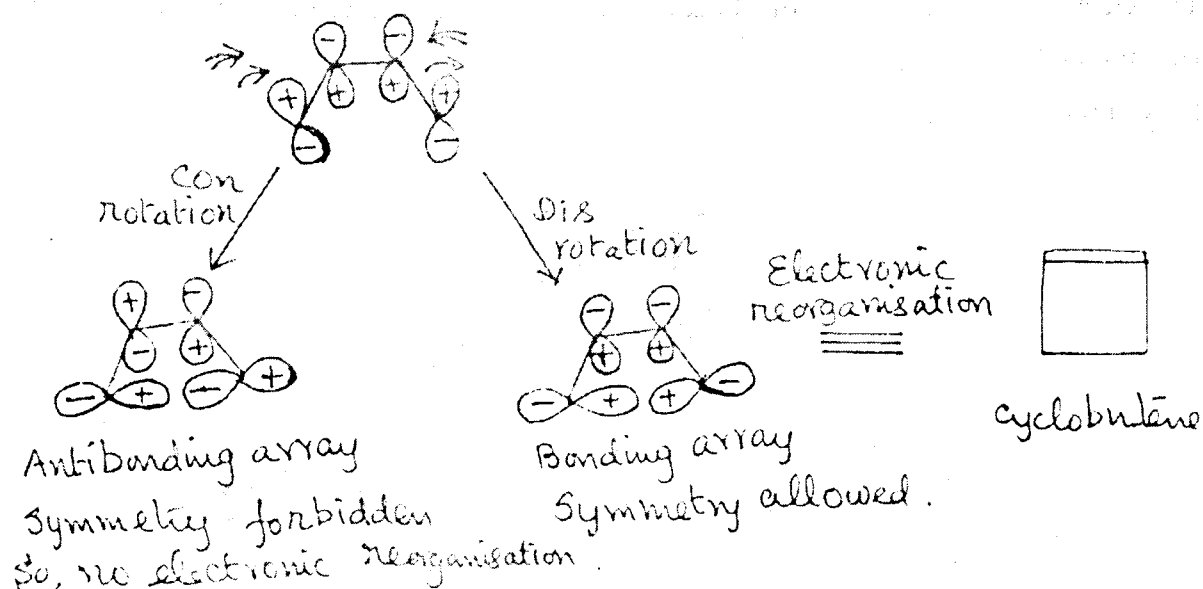 - -
+ + + +
- -
Con
rotation
Dis
rotation
Electronic
reorganisation
+ -
- +
- + - +
- -
+ +
- + + -
cyclobutene
Antibonding array
Symmetry forbidden
So, no electronic reorganisation.
Bonding array
Symmetry allowed.